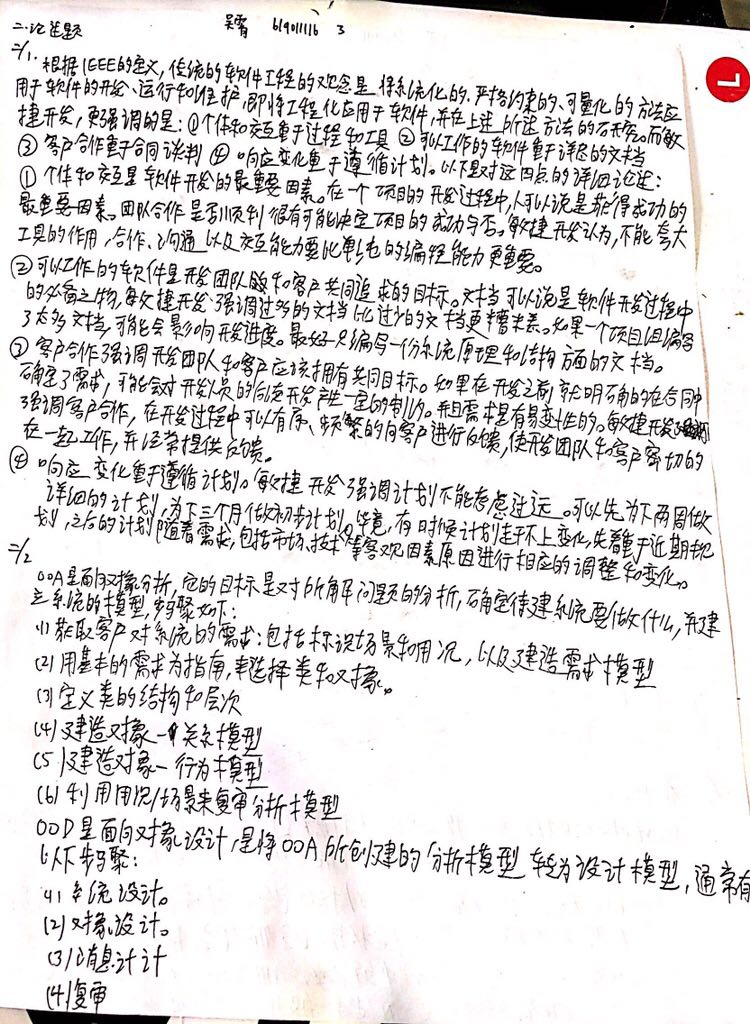 二.论述题 吴霄 619011116 3
二/1.
根据IEEE的定义,传统的软件工程的观念是 将系统化的、严格约束的、可量化的方法应
用于软件的开发、运行和维护,即将工程化应用于软件,并在上述所述方法的研究。而敏
捷开发,更强调的是:①个体和交互重于过程和工具 ②可以工作的软件重于详尽的文档
③ 客户合作重于合同谈判 ④ 响应变化重于遵循计划。以下是对这四点的详细论述:
① 个体和交互是软件开发的最重要因素。在一个项目的开发过程中,人可以说是获得成功的
最重要因素。团队合作是否顺利很有可能决定项目的成功与否。敏捷开发认为,不能夸大
工具的作用,合作、沟通以及交互能力要比单纯的编程能力更重要。
②可以工作的软件是开发团队和客户共同追求的目标。文档可以说是软件开发过程中
的必备之物,敏捷开发强调过多的文档比过少的文档更糟糕。如果一个项目组编写
了太多文档,可能会影响开发进度。最好只编写一份系统原理和结构方面的文档。
③ 客户合作强调开发团队和客户应该拥有共同目标。如果在开发之前就明确的在合同中
确定了需求,可能会对开发人员的后续开发产生一定的制约。并且需求是有易变性的。敏捷开发
强调客户合作,在开发过程中可以有序、频繁的向客户进行反馈,使开发团队和客户密切的
在一起工作,并经常提供反馈。
④ 响应变化重于遵循计划。敏捷开发强调计划不能考虑过远。可以先为下两周做
详细的计划,为下三个月做初步计划。毕竟,有时候计划赶不上变化,先着重于近期规
划,之后的计划随着需求,包括市场、技术等客观因素原因进行相应的调整和变化。
二/2
OOA是面向对象分析,它的目标是对所解问题的分析,确定待建系统要做什么,并建
立系统的模型,步骤如下:
(1) 获取客户对系统的需求:包括标识场景和用况,以及建造需求模型
(2) 用基本的需求为指南,来选择类和对象。
(3) 定义类的结构和层次
(4) 建造对象-关系模型
(5) 建造对象-行为模型
(6) 利用用况/场景来复审分析模型
OOD是面向对象设计,是将OOA所创建的分析模型转为设计模型,通常有
以下步骤:
(1) 系统设计。
(2) 对象设计。
(3) 消息计计
(4) 复审